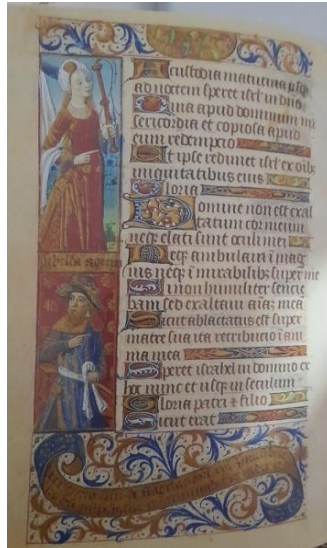 A custodia matutina usq;
ad noctem speret isrl' in dño
Quia apud dominum mi
sericordia et copiosa apud
eum redempcio
Et ipse redimet isrl' ex oīb;
iniquitatibus eius
Gloria
Domine non est exal
tatum cor meum
neq; elati sunt oculi mei
Neq; ambulavi ī mag
nis neq; ī mirabilib; super me
Si non humiliter sencie
bam sed exaltavi aīaz meā
Sicut ablactatus est super
matre sua ita retributio ī ani
ma mea
Speret israhel in domino ex
hoc nunc et usq; in seculum
Gloria patri et filio
Sicut erat